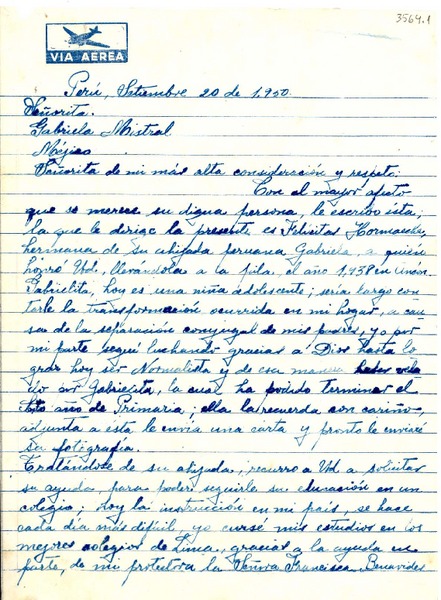 3564.1
VIA AEREA
Perú, Setiembre 20 de 1,950.
Señorita.
Gabriela Mistral.
Méjico
Señorita de mi más alta consideración y respeto:
Con el mayor afecto
que se merece su digna persona, le escribo ésta;
la que le dirige la presente es Felicitas
hermana de su ahijada peruana Gabriela, a quién
honró Ud, llevándola a la pila, el año 1,938 en
Gabrielita, hoy es una niña adolescente; sería largo con-
tarle la transformación ocurrida en mi hogar, a cau-
sa de la separación conyugal de mis padres, yo por
mi parte seguí luchando gracias a Dios hasta lo
grar hoy ser Normalista y de esa manera
por Gabrielita, la cual ha podido terminar el
5to año de Primaria; ella la recuerda con cariño,
adjunta a esta le envía una carta y pronto le enviaré
su fotografía.
Tratándose de su ahijada, recurro a Ud a solicitar
su ayuda para poder seguirle su educación en un
colegio; hoy la instrucción en mi país, se hace
cada día más difícil, yo cursé mis estudios en los
mejores colegios de Lima, gracias a la ayuda en
parte, de mi protectora la Señora Francisca Benavides